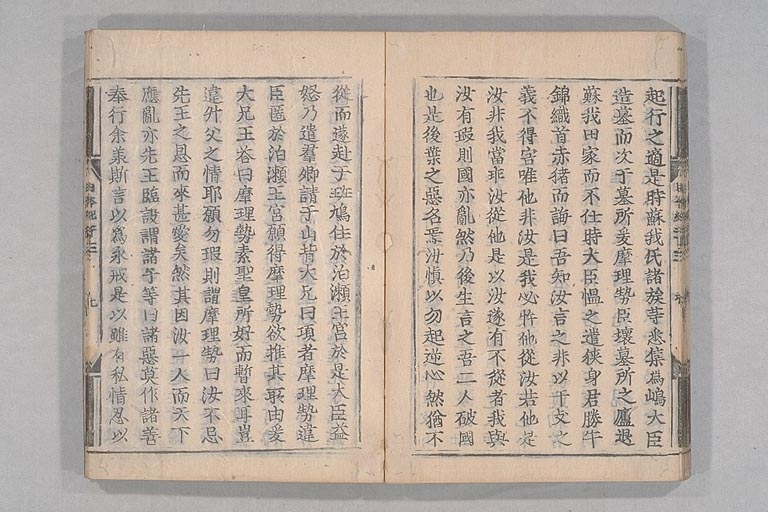 起行之適是時蘇我氏諸族等悉集為嶋大臣
造墓而次于墓所爰摩理勢臣壞墓所之廬退
蘇我田家而不仕時大臣慍之遣狹身君勝牛
錦織首赤猪而誨曰吾知汝言之非以干支之
義不得害唯他非汝是我必忤他從汝若他是
汝非我當非汝從他是以汝遂有不從者我與
汝有瑕則國亦亂然乃後生言之吾二人破國
也是後葉之惡名焉汝愼以勿起逆心然猶不
從而遂赴于斑鳩住於泊瀬王宮於是大臣益
怒乃遣羣卿請于山背大兄曰項者摩理勢違
臣匿於泊瀬王宮願得摩理勢欲推其所由爰
大兄王荅曰摩理勢素聖皇所好而暫來耳豈
違叔父之情耶願勿瑕則謂摩理勢曰汝不忘
先王之恩而來甚愛矣然其因汝一人而天下
應亂亦先王臨沒謂諸子等曰諸惡莫作諸善
奉行余羕斯言以為永戒是以雖有私情忍以